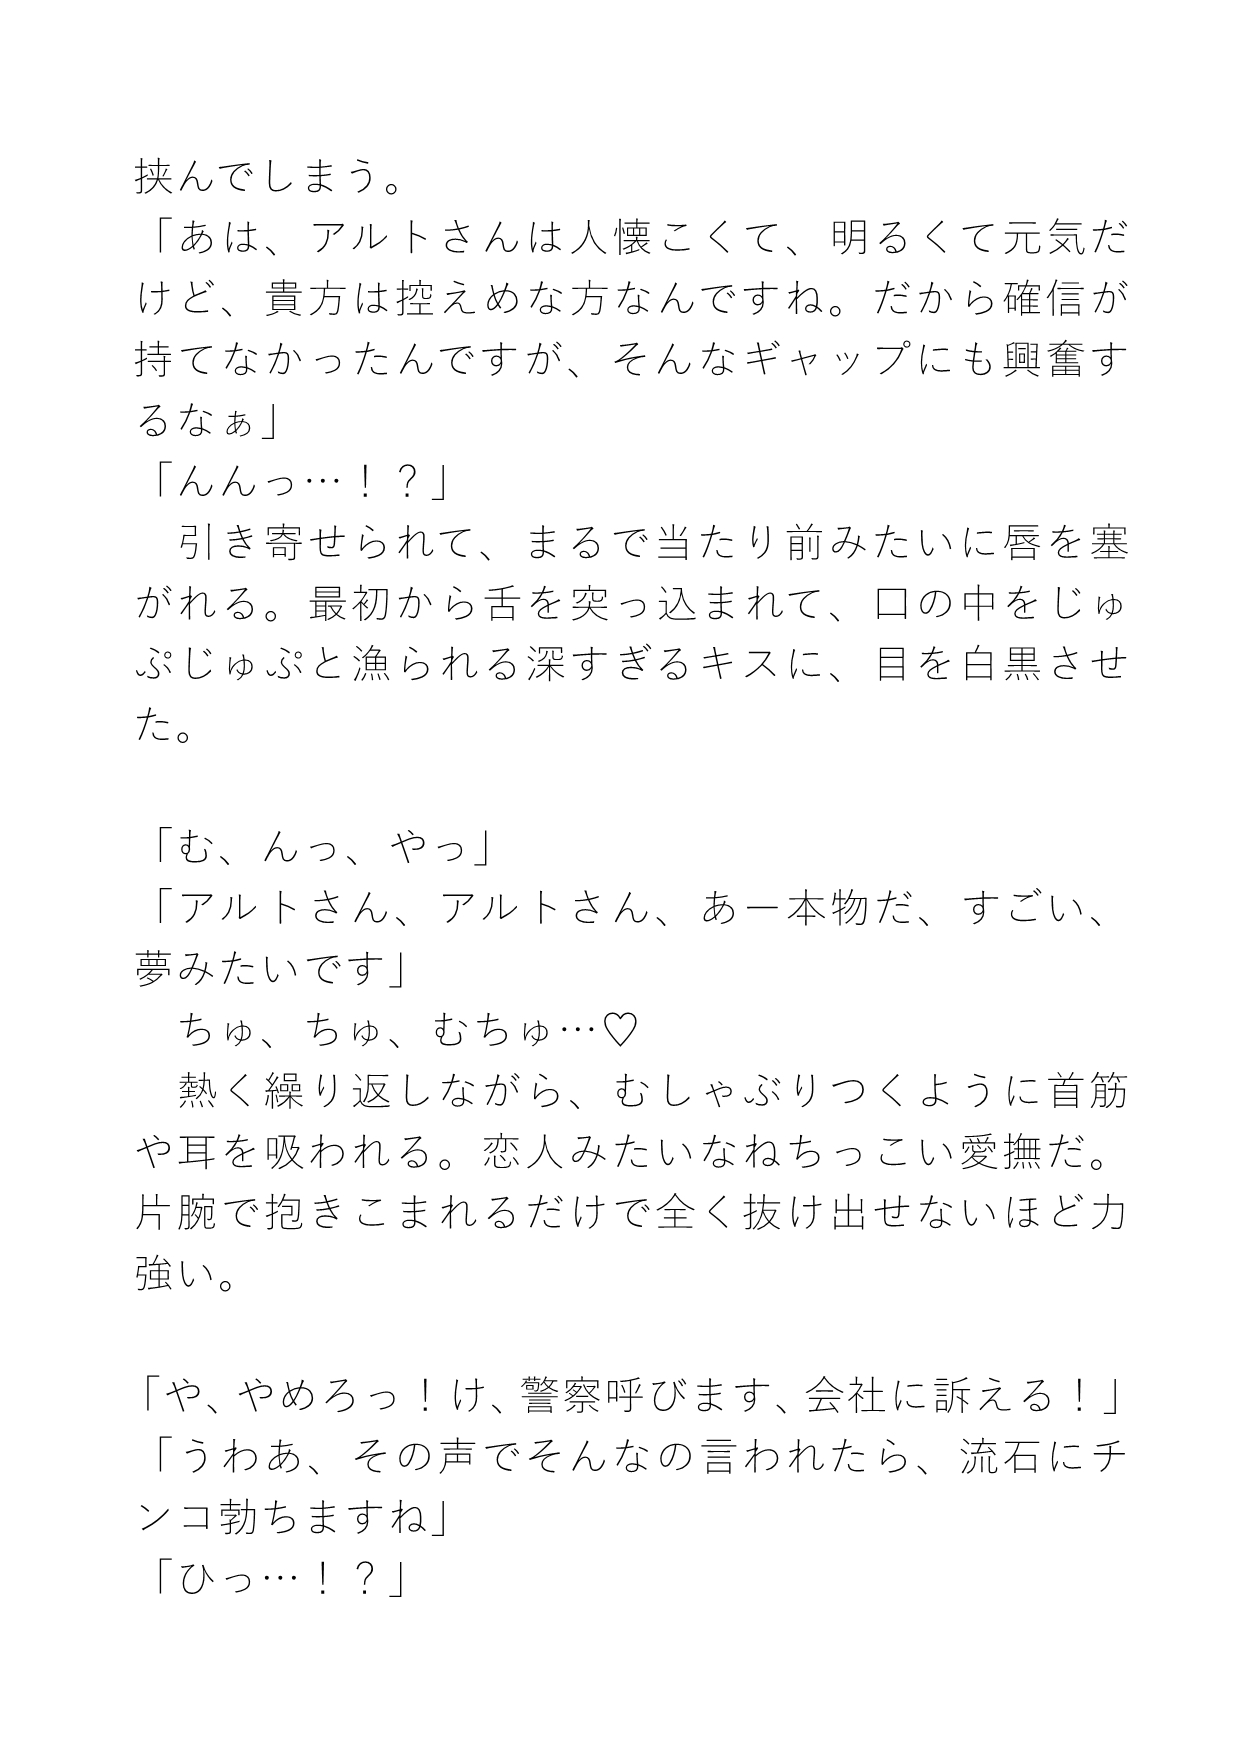 挟んでしまう。
「あは、アルトさんは人懐こくて、明るくて元気だ
けど、貴方は控えめな方なんですね。だから確信が
持てなかったんですが、そんなギャップにも興奮す
るなぁ」
「んんっ…！？」
　引き寄せられて、まるで当たり前みたいに唇を塞
がれる。最初から舌を突っ込まれて、口の中をじゅ
ぷじゅぷと漁られる深すぎるキスに、目を白黒させ
た。
「む、んっ、やっ」
「アルトさん、アルトさん、あー本物だ、すごい、
夢みたいです」
　ちゅ、ちゅ、むちゅ…♡
　熱く繰り返しながら、むしゃぶりつくように首筋
や耳を吸われる。恋人みたいなねちっこい愛撫だ。
片腕で抱きこまれるだけで全く抜け出せないほど力
強い。
「や、やめろっ！け、警察呼びます、会社に訴える！」
「うわあ、その声でそんなの言われたら、流石にチ
ンコ勃ちますね」
「ひっ…！？」